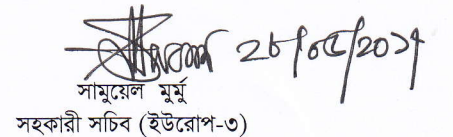 ২৮/০৫/২০১৭
সামুয়েল মুর্মু
সহকারী সচিব (ইউরোপ-৩)